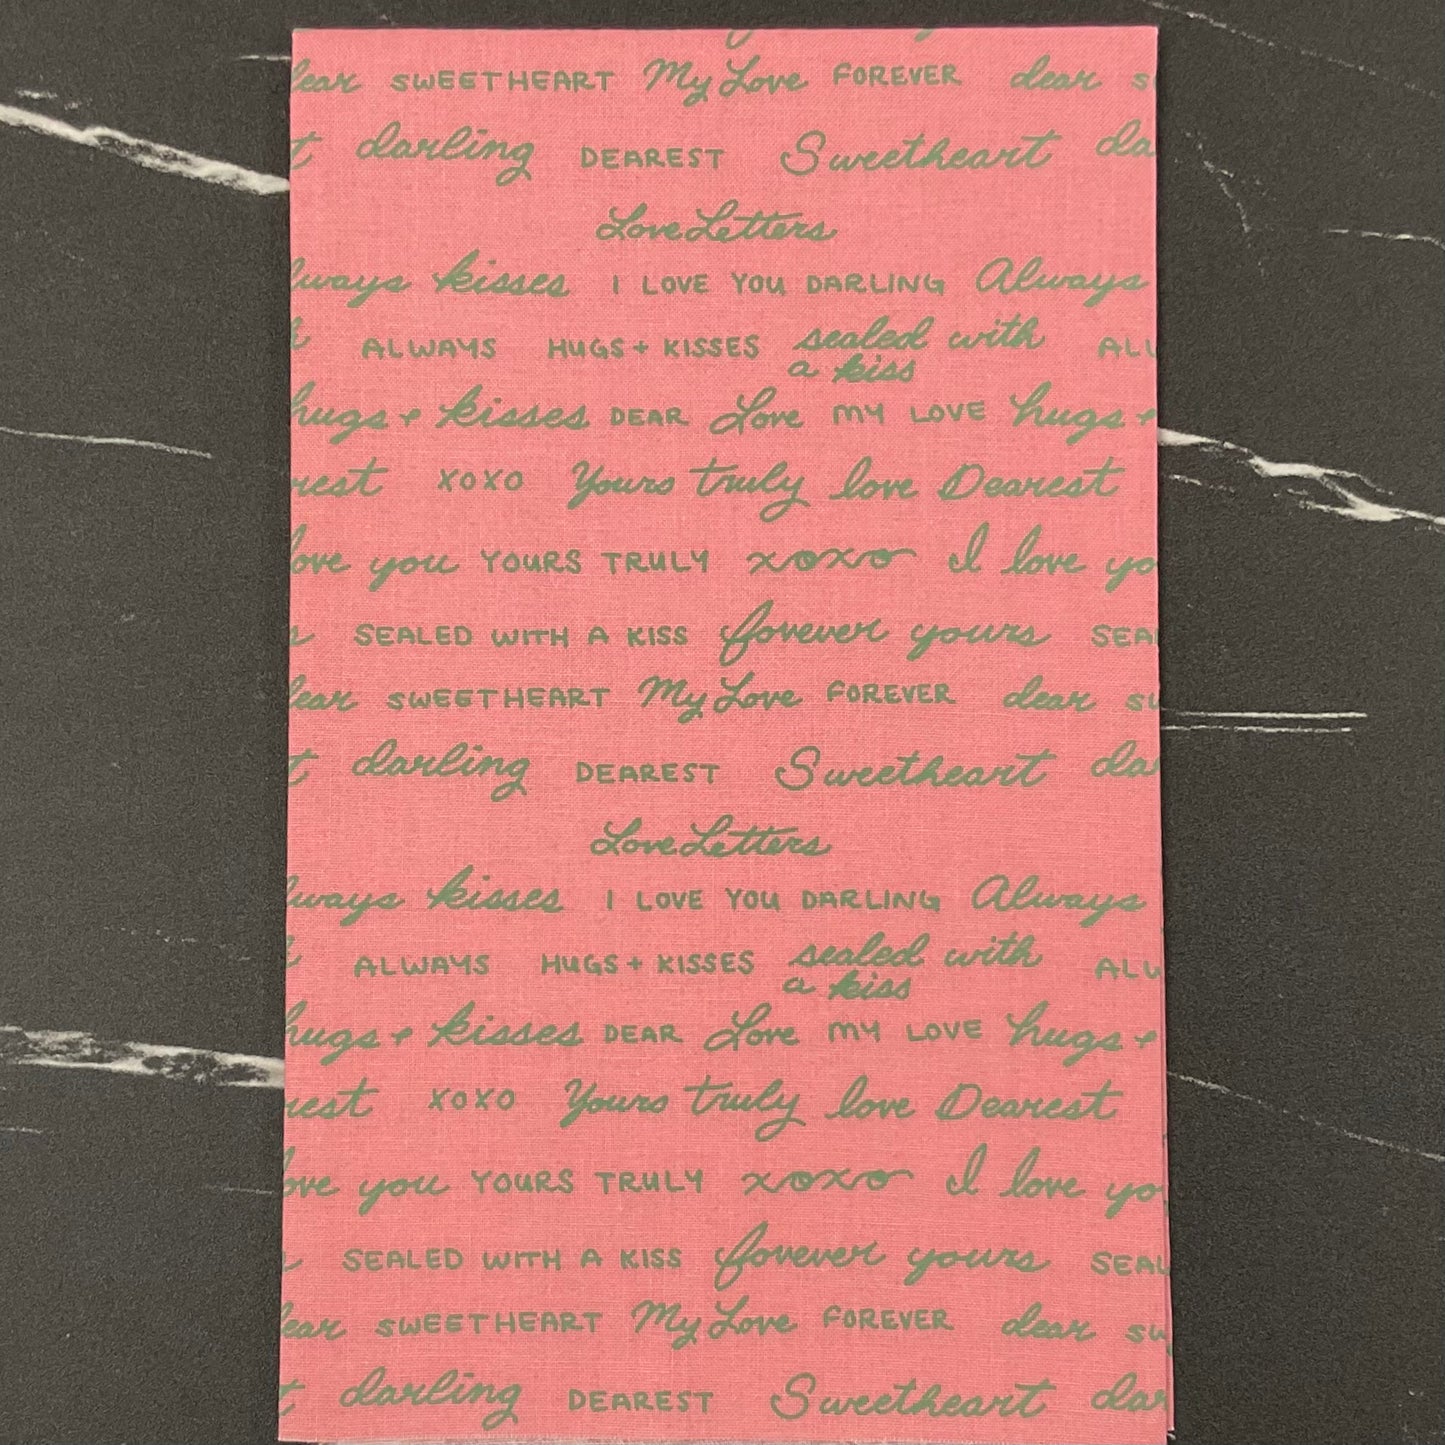 dear SWEETHEART My Love FOREVER dear
darling DEAREST Sweetheart
Love Letters
Always kisses I LOVE YOU DARLING Always
ALWAYS HUGS + KISSES sealed with
a kiss
hugs + kisses DEAR Love MY LOVE hugs +
XOXO Yours truly love Dearest
love you YOURS TRULY xoxo I love
SEALED WITH A KISS forever yours
dear SWEETHEART My Love FOREVER dear
darling DEAREST Sweetheart
Love Letters
Always kisses I LOVE YOU DARLING Always
ALWAYS HUGS + KISSES sealed with
a kiss
hugs + kisses DEAR Love MY LOVE hugs +
XOXO Yours truly love Dearest
love you YOURS TRULY xoxo I love
SEALED WITH A KISS forever yours
dear SWEETHEART My Love FOREVER dear
darling DEAREST Sweetheart